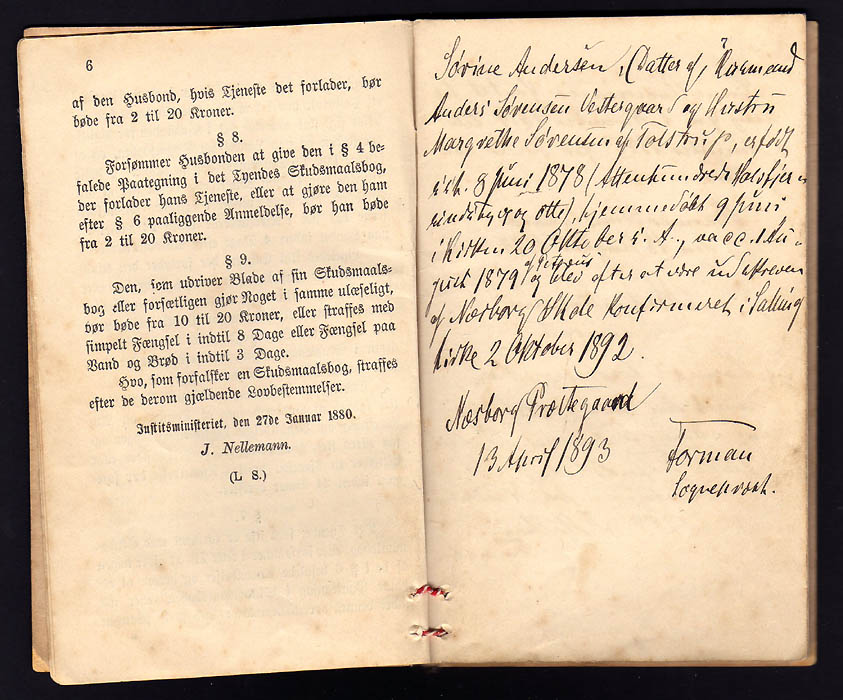 6
af den Husbond, hvis Tjeneste det forlader, bør
bøde fra 2 til 20 Kroner.
§ 8.
Forsømmer Husbonden at give den i § 4 be-
falede Paategning i det Tyendes Skudsmaalsbog,
der forlader hans Tjeneste, eller at gjøre den ham
efter § 6 paaliggende Anmeldelse, bør han bøde
fra 2 til 20 Kroner.
§ 9.
Den, som udriver Blade af sin Skudsmaals-
bog eller forsætligen gjør Noget i samme ulæseligt,
bør bøde fra 10 til 20 Kroner, eller straffes med
simpelt Fængsel i indtil 8 Dage eller Fængsel paa
Vand og Brød i indtil 3 Dage.
Hvo, som forfalsker en Skudsmaalsbog, straffes
efter de derom gjældende Lovbestemmelser.
Justitsministeriet, den 27de Januar 1880.
J. Nellemann.
(L S.)
Sørine Andersen, (Datter af
Anders Sørensen Vestergaard og Hustru
Margrethe Sørensen af Tolstrup, er født
8 Juni 1878 (Attenhundrede Halvfjer-
sindstyve og otte), hjemmedøbt 9 Juni
i Kirken 20 Oktober s. A., vacc. 1 Au-
gust 1879 og blev efter at være udskreven
af Næsborg Skole Konfirmeret i Salling
Kirke 2 Oktober 1892.
Næsborg Præstegaard
13 April 1893
Forman
Sognepræst.